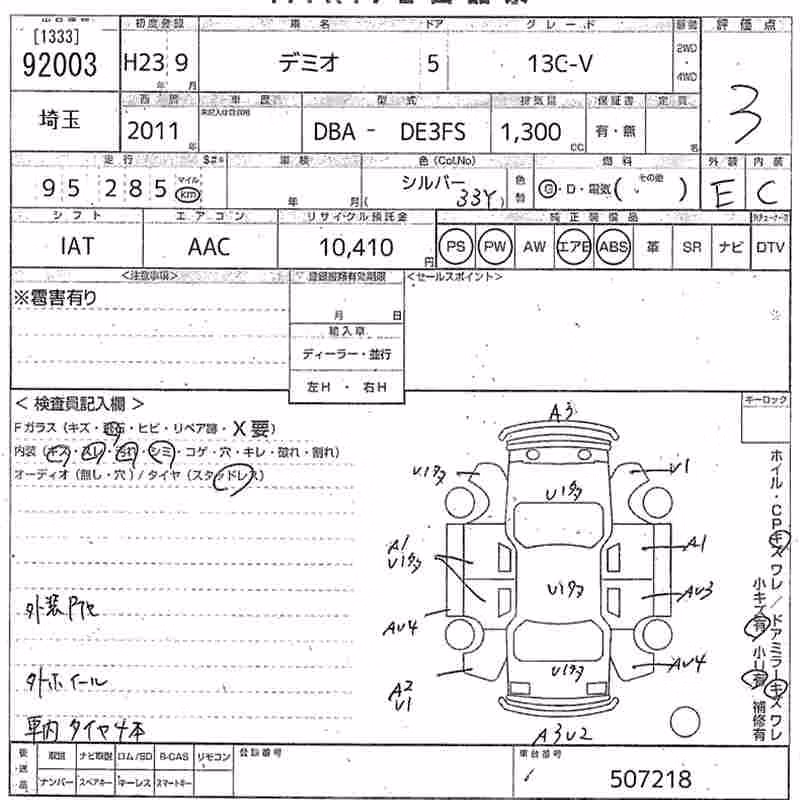 [1333]
92003
初度登録 車名 ドア グレード 評価点
H23 9 デミオ 5 13C-V 2WD
年 月 4WD
3
埼玉
車歴 型式 排気量 保証書 定員
2011 DBA - DE3FS 1,300 有・無
年 CC 名
走行 車検 色(Col.No) 燃料 外装 内装
95 285 マイル km 年 月 シルバー 33Y 色替 G・D・電気( その他 ) E C
シフト エアコン リサイクル預託金 純正装備品
IAT AAC 10,410 円 PS PW AW エアB ABS 革 SR ナビ DTV
<注意事項> <セールスポイント>
※雹害有り
月 日
輸入車
ディーラー・並行
左H ・ 右H
キーロック
< 検査員記入欄 >
Fガラス(キズ・飛石・ヒビ・リペア跡・X要)
内装(キズ・スレ・汚れ・シミ・コゲ・穴・キレ・破れ・割れ)
オーディオ(無し・穴)/タイヤ(スタッドレス)
A3
U1タタ U1
U1タタ
A1 A1
U1タタ
U1タタ AU3
AU4
U1タタ AU4
A2
U1
A3U2
ホイル・CPキズワレ/ドアミラーキズワレ
小キズ有/小U有 補修有
外ホイール
車内タイヤ4本
後送品 取説 ナビ取説 ロム/SD B-CAS リモコン 登録番号 車台番号
ナンバー スペアキー キーレス スマートキー 507218